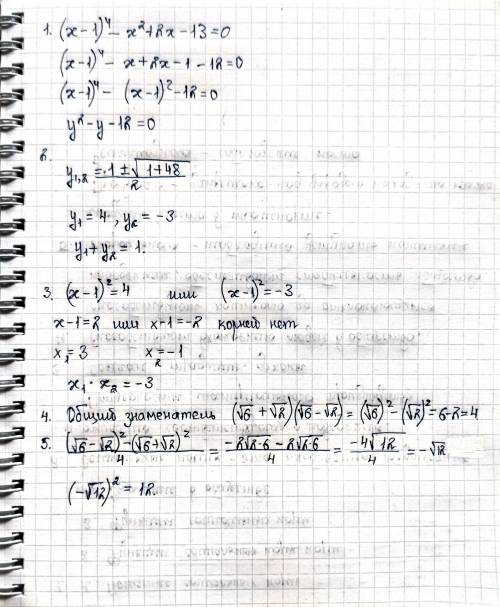 1. (x-1)⁴ - x²+2x-13=0
(x-1)⁴ - x+2x-1-12=0
(x-1)⁴ - (x-1)²-12=0
y²-y-12=0
2.
y₁,₂ = 1±√1+48 / 2
y₁=4, y₂=-3
y₁+y₂=1.
3. (x-1)²=4 или (x-1)²=-3
x-1=2 или x-1=-2 корней нет
x₁=3 x₂=-1
x₁·x₂=-3
4. Общий знаменатель (√6+√2)(√6-√2)=(√6)²-(√2)²=6-2=4
5. (√6-√2)²-(√6+√2)² / 4 = -2√2·6-2√2·6 / 4 = -4√12 / 4 = -√12
(-√12)²=12.